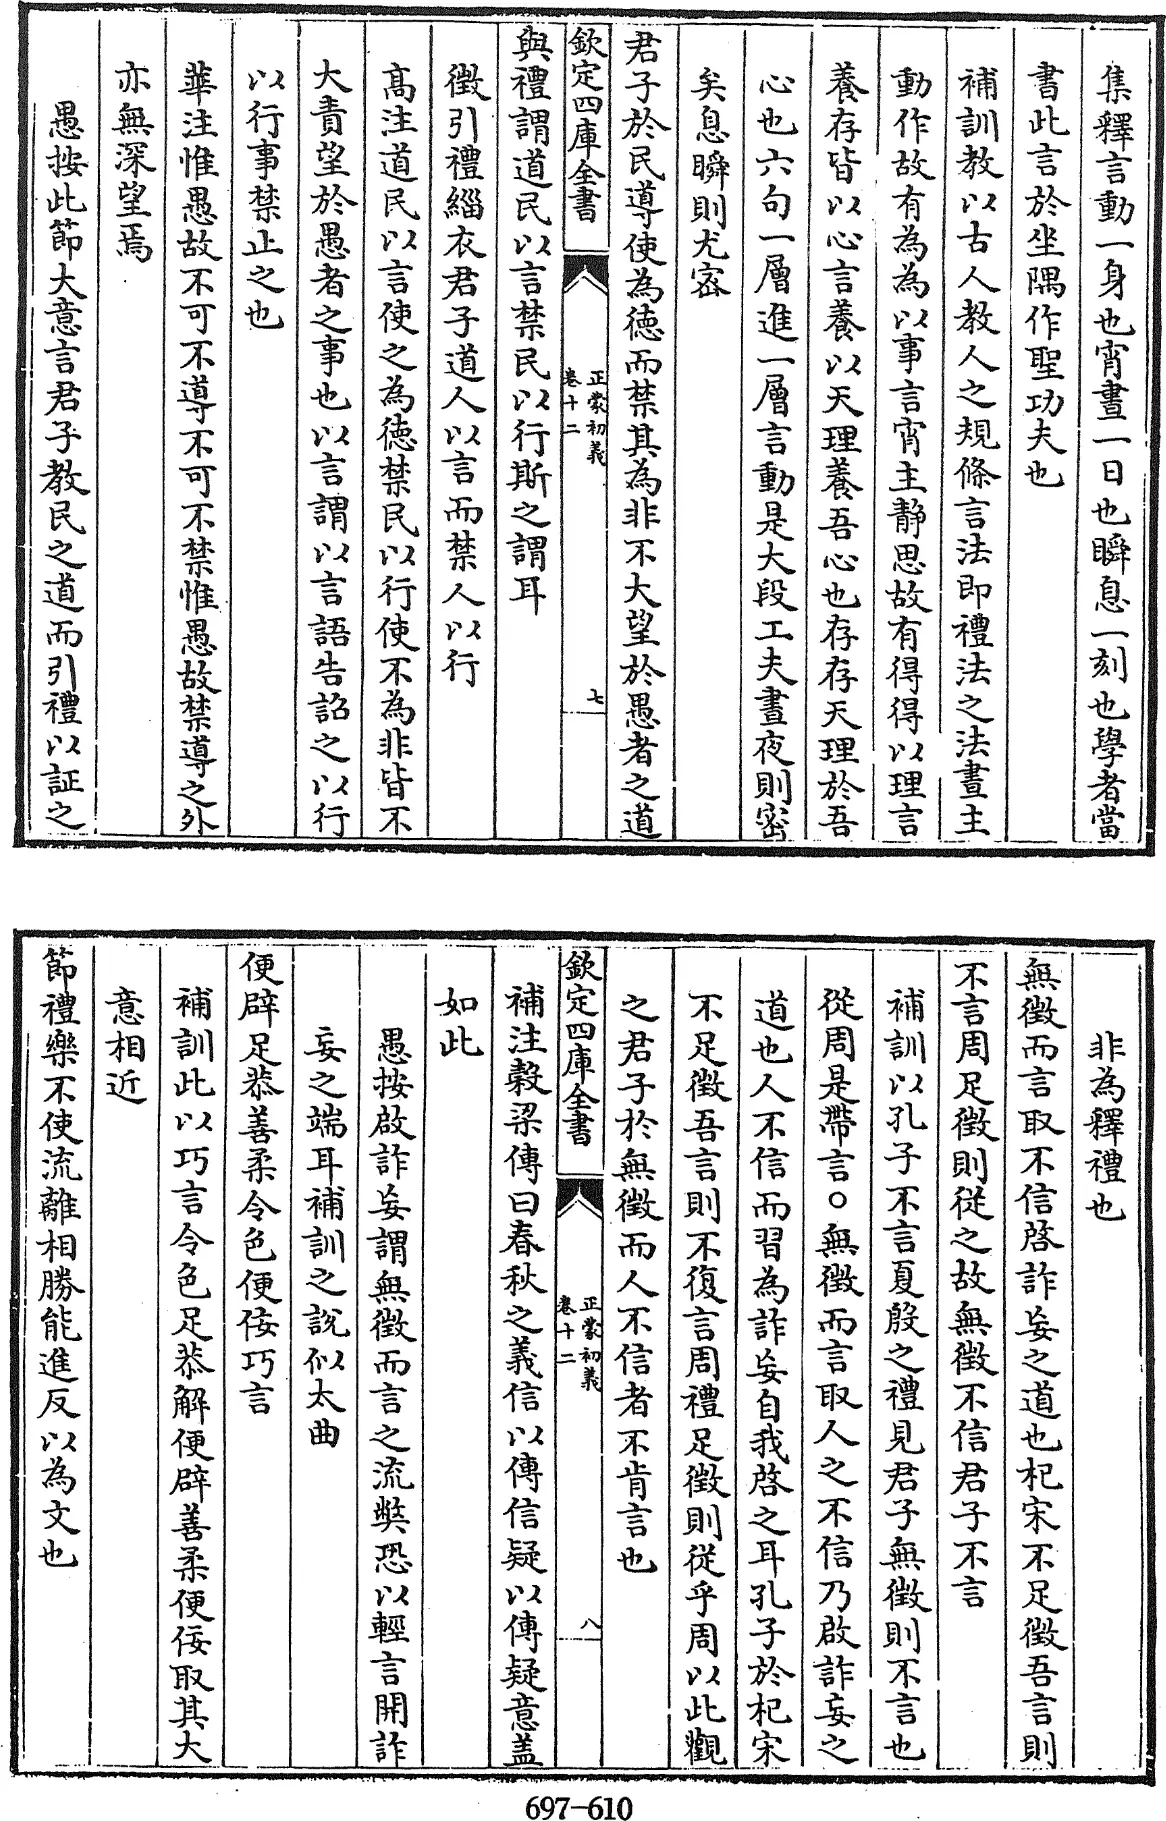 集釋言動一身也宵晝一日也瞬息一刻也學者當
書此言於坐隅作聖功夫也
補訓教以古人教人之規條言法即禮法之法晝主
動作故有為為以事言宵主靜思故有得得以理言
養存皆以心言養以天理養吾心也存存天理於吾
心也六句一層進一層言動是大段工夫晝夜則密
矣息瞬則尤密
君子於民導使為徳而禁其為非不大望於愚者之道
欽定四庫全書
正蒙初義
卷十二
七
與禮謂道民以言禁民以行斯之謂耳
徵引禮緇衣君子道人以言而禁人以行
髙注道民以言使之為徳禁民以行使不為非皆不
大責望於愚者之事也以言謂以言語告詔之以行
以行事禁止之也
華注惟愚故不可不導不可不禁惟愚故禁導之外
亦無深望焉
愚按此節大意言君子教民之道而引禮以証之
非為釋禮也
無徵而言取不信啓詐妄之道也杞宋不足徵吾言則
不言周足徵則從之故無徵不信君子不言
補訓以孔子不言夏殷之禮見君子無徵則不言也
從周是帶言○無徵而言取人之不信乃啟詐妄之
道也人不信而習為詐妄自我啓之耳孔子於杞宋
不足徵吾言則不復言周禮足徵則從乎周以此觀
之君子於無徵而人不信者不肯言也
欽定四庫全書
正蒙初義
卷十二
八
補注穀梁傳曰春秋之義信以傳信疑以傳疑意盖
如此
愚按啟詐妄謂無徵而言之流獘恐以輕言開詐
妄之端耳補訓之說似太曲
便辟足恭善柔令色便佞巧言
補訓此以巧言令色足恭解便辟善柔便佞取其大
意相近
節禮樂不使流離相勝能進反以為文也
697-610